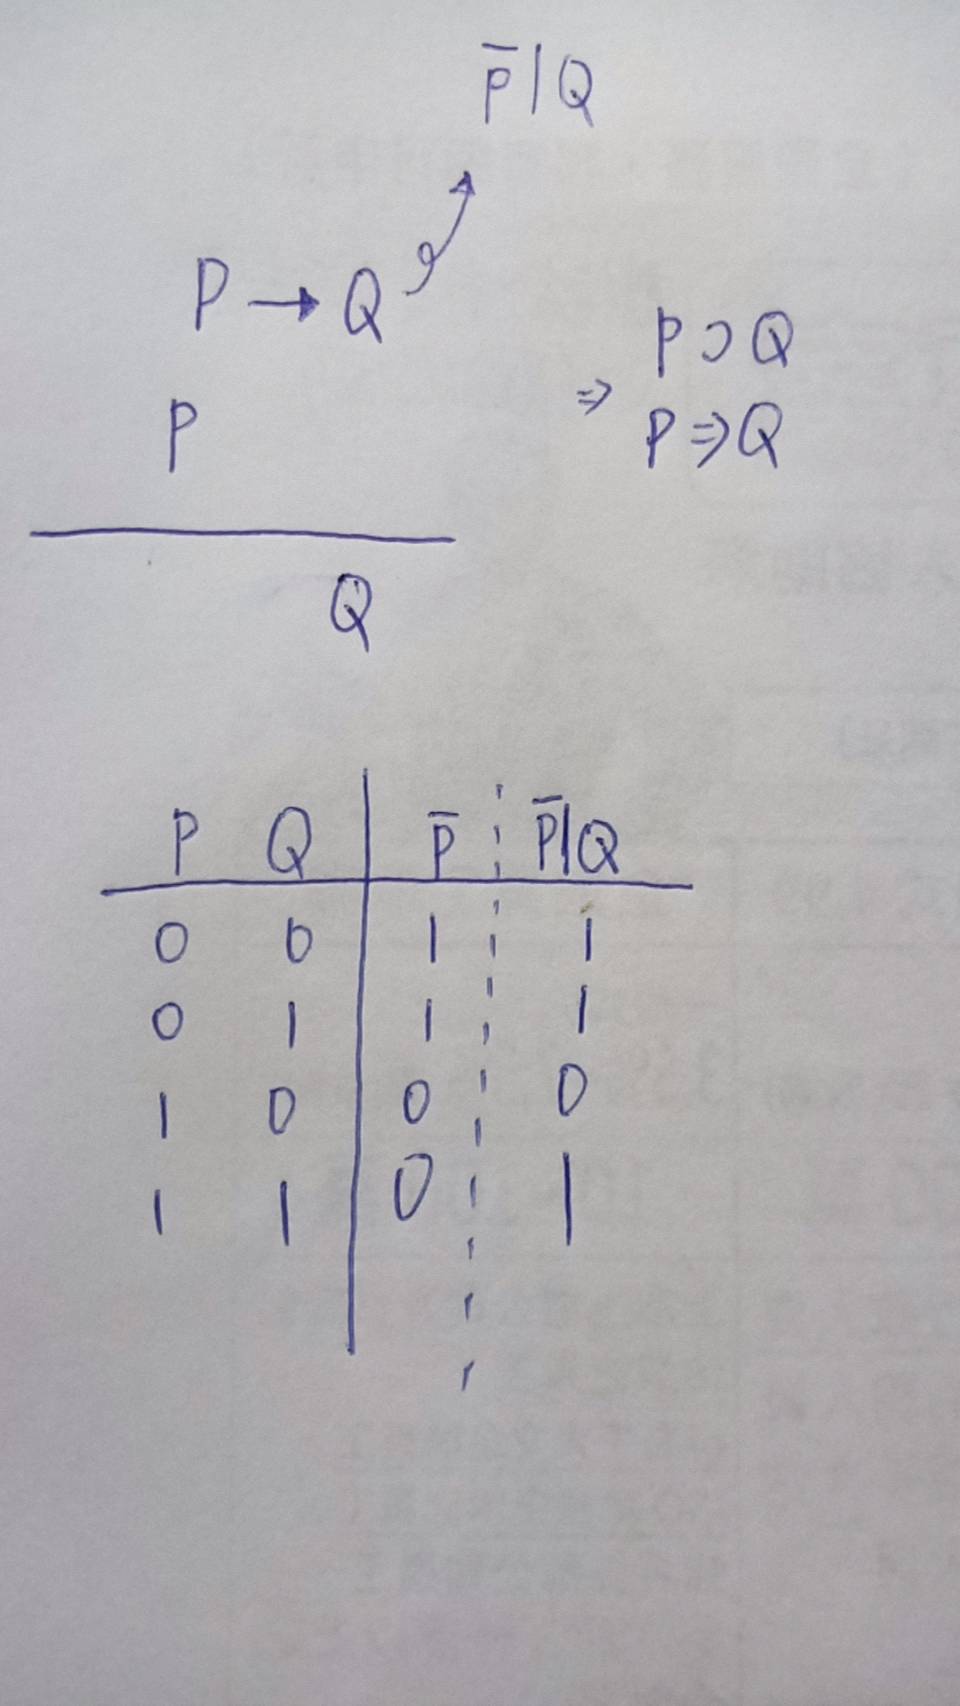 P̅|Q
P → Q
P
Q
P ⊃ Q
⇒
P ⇒ Q
P Q P̅ P̅|Q
0 0 1 1
0 1 1 1
1 0 0 0
1 1 0 1